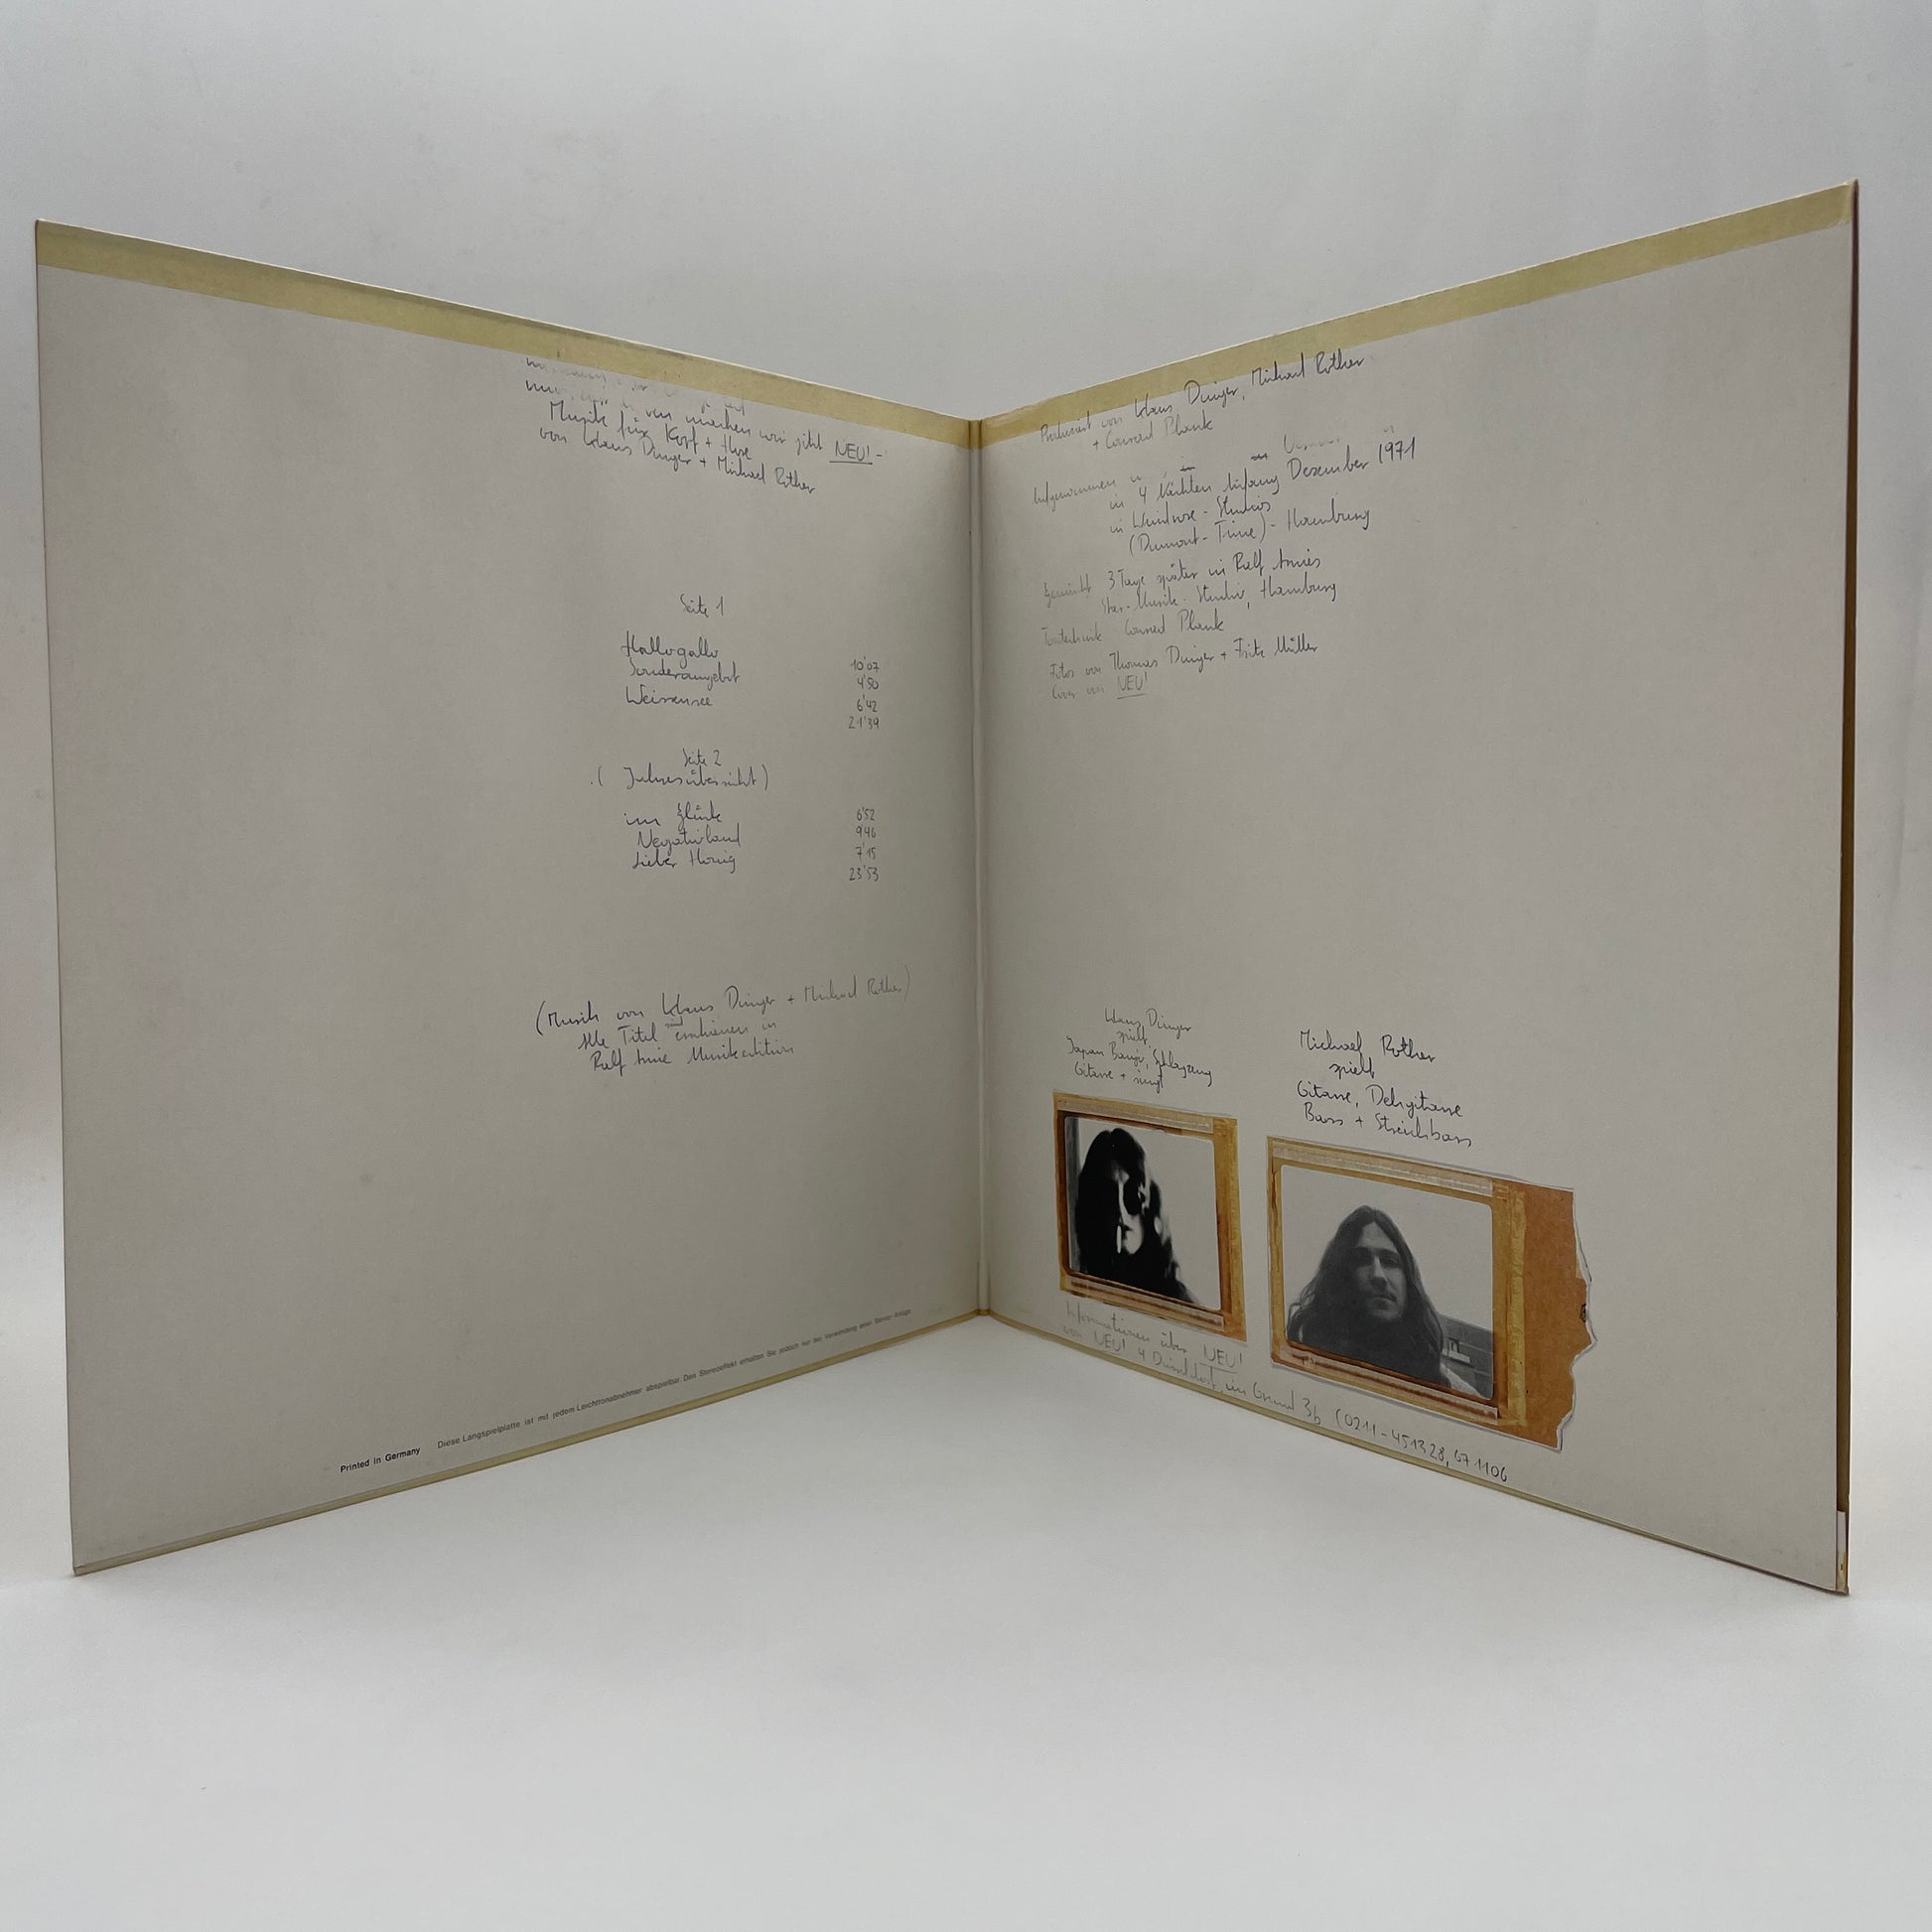 machen wir jetzt NEU! -
Musik für Kopf + Hose
von Klaus Dinger + Michael Rother
Seite 1
Hallogallo 10'07
Sonderangebot 4'50
Weissensee 6'42
21'39
Seite 2
( Jahresübersicht )
im Glück 6'52
Negativland 9'46
Lieber Honig 7'15
23'53
(Musik von Klaus Dinger + Michael Rother)
Alle Titel sind erschienen in
Ralf Arnie Musikedition
Printed in Germany Diese Langspielplatte ist mit jedem Leichttonabnehmer abspielbar. Den Stereoeffekt erhalten Sie jedoch nur bei Verwendung einer Stereo-Anlage
Produziert von Klaus Dinger, Michael Rother
+ Conrad Plank
Aufgenommen
in 4 Nächten Anfang Dezember 1971
in Windrose - Studios
(Dumont - Time) - Hamburg
Gemischt 3 Tage später in Ralf Arnies
Star - Musik - Studio, Hamburg
Tontechnik Conrad Plank
Fotos von Thomas Dinger + Fritz Müller
Cover von NEU!
Klaus Dinger
spielt
Japan Banjo, Schlagzeug
Gitarre + singt
Michael Rother
spielt
Gitarre, Dehgitarre
Bass + Streichbass
Informationen über NEU!
von NEU! 4 Düsseldorf, im Grund 3b (0211 - 451328, 671106